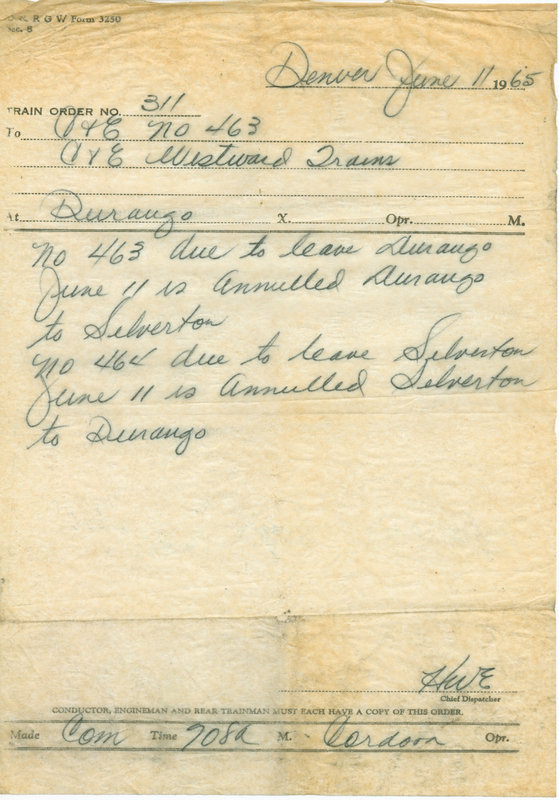 R G W Form 3250
Denver June 11 1965
TRAIN ORDER NO. 311
To C&E No 463
C&E Westward Trains
At Durango X. Opr. M.
No 463 due to leave Durango
June 11 is Annulled Durango
to Silverton
No 464 due to leave Silverton
June 11 is Annulled Silverton
to Durango
HWE
Chief Dispatcher
CONDUCTOR, ENGINEMAN AND REAR TRAINMAN MUST EACH HAVE A COPY OF THIS ORDER.
Made Com Time 908a M. Cordova Opr.